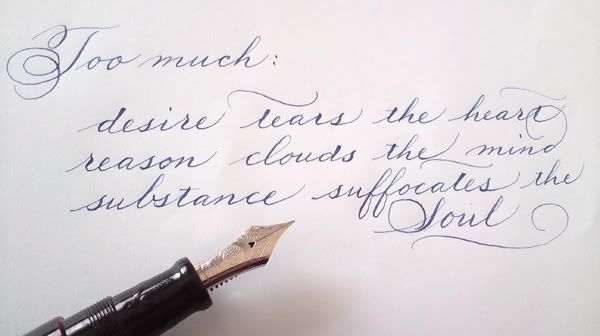 Too much:
desire tears the heart
reason clouds the mind
substance suffocates the
Soul